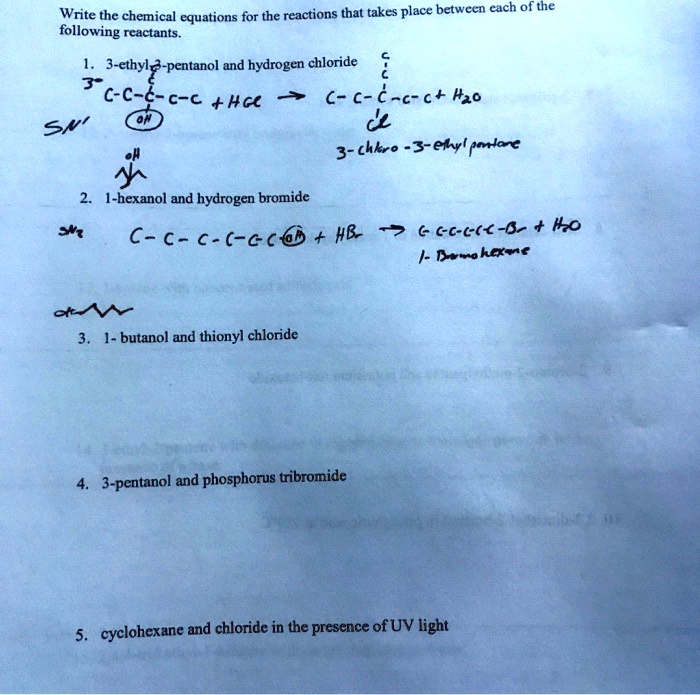 Write the chemical equations for the reactions that takes place between each of the
following reactants.
1. 3-ethyl-3-pentanol and hydrogen chloride
3°
C
C
C
C-C-C-C-C + HCl → C-C-C-C-C + H2O
SN'
OH
Cl
3-chloro-3-ethylpentane
OH
2. 1-hexanol and hydrogen bromide
SN2
C-C-C-C-C-C OH + HBr → C-C-C-C-C-C-Br + H2O
1-Bromohexane
OH
3. 1- butanol and thionyl chloride
4. 3-pentanol and phosphorus tribromide
5. cyclohexane and chloride in the presence of UV light